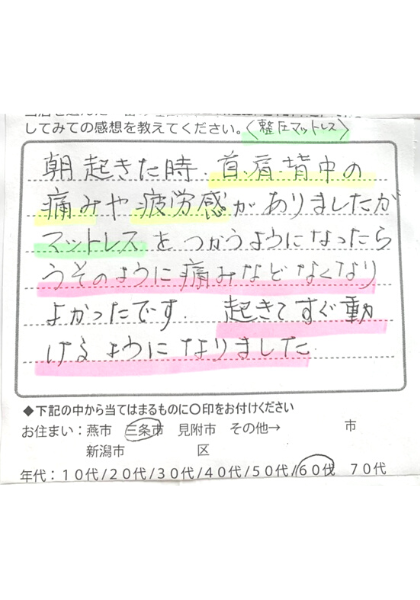 してみての感想を教えてください。〈整圧マットレス〉
朝起きた時、首・肩・背中の
痛みや疲労感がありましたが
マットレスをつかうようになったら
うそのように痛みなどなくなり
よかったです。起きてすぐ動
けるようになりました
◆下記の中から当てはまるものに〇印をお付けください
お住まい：燕市 三条市 見附市 その他→ 市
新潟市 区
年代：１０代/２０代/３０代/４０代/５０代/６０代 ７０代